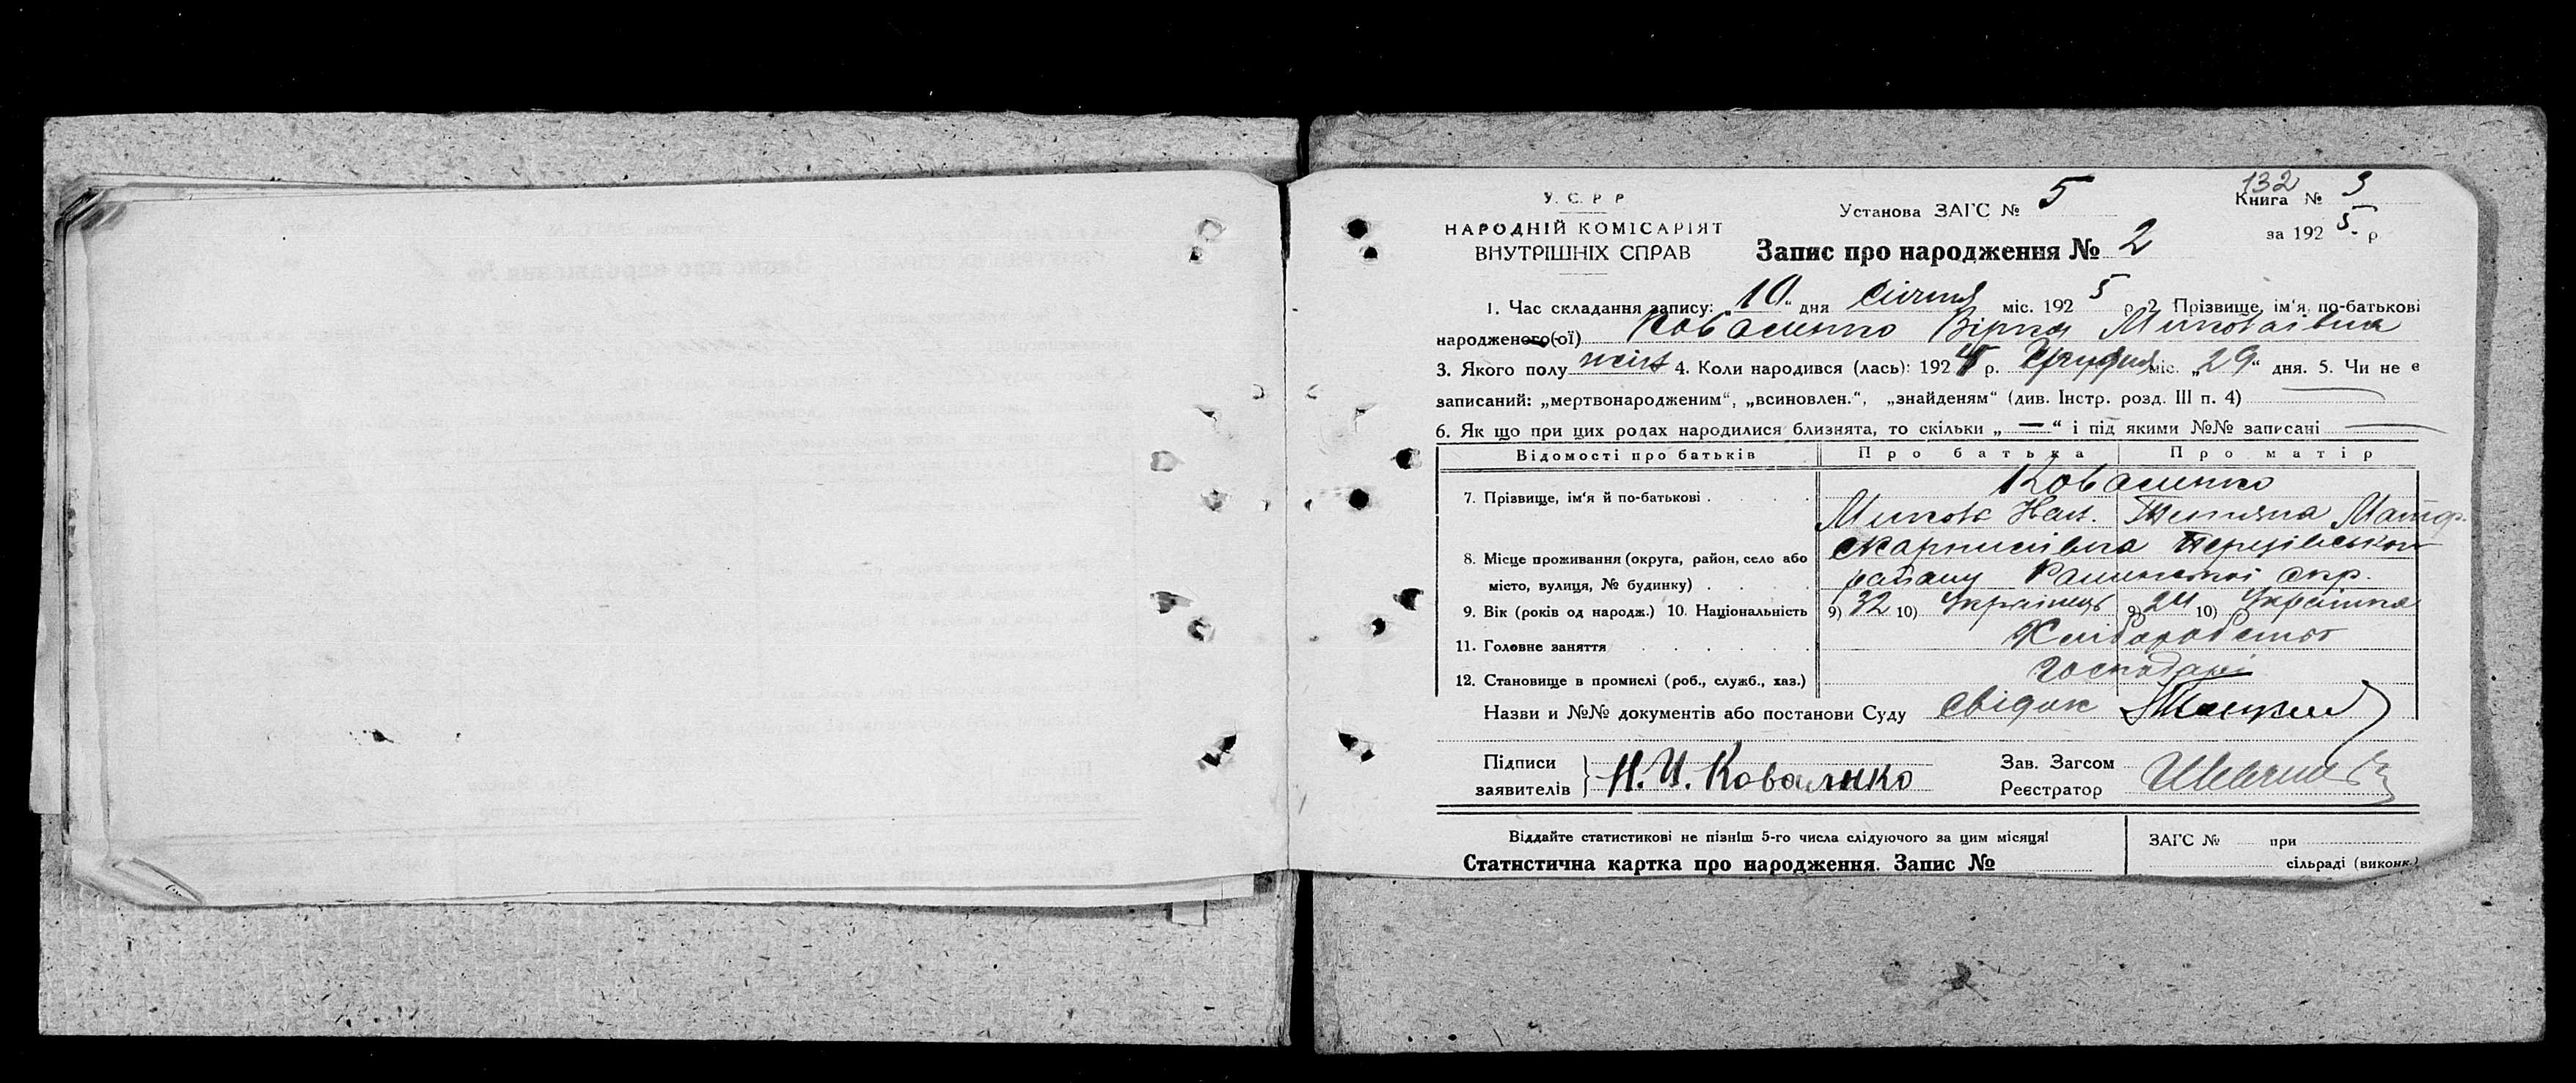 У. С. Р. Р.
НАРОДНІЙ КОМІСАРІЯТ
ВНУТРІШНІХ СПРАВ
Установа ЗАГС № 5
132
Книга № 3
за 1925 р.
Запис про народження № 2
1. Час складання запису: „10“ дня Січня міс. 1925 р. 2. Прізвище, ім‘я, по-батькові
народженого(-ої) Коваленко Вірка Миколаївна
3. Якого полу жін 4. Коли народився (лась): 1924 р. Грудня міс. „29“ дня. 5. Чи не є
записаний: „мертвонародженим“, „всиновлен.“, „знайденям“ (див. Інстр. розд. III п. 4) —
6. Як що при цих родах народилися близнята, то скільки „ — “ і під якими №№ записані —
Відомості про батьків Про батька Про матір
7. Прізвище, ім‘я й по-батькові Коваленко
Микола Тетяна
8. Місце проживання (округа, район, село або
місто, вулиця, № будинку) району Роменської окр.
9. Вік (років од народж.) 10. Національність 9) 32 10) Українець 9) 24 10) Українка
11. Головне заняття Хліборобство
12. Становище в промислі (роб., служб., хаз.) господарі
Назви и №№ документів або постанови Суду Свідок
Підписи
заявителів Н. И. Коваленко
Зав. Загсом
Реєстратор
Віддайте статистикові не пізніш 5-го числа слідуючого за цим місяця!
Статистична картка про народження. Запис №
ЗАГС № при
сільраді (виконк.)